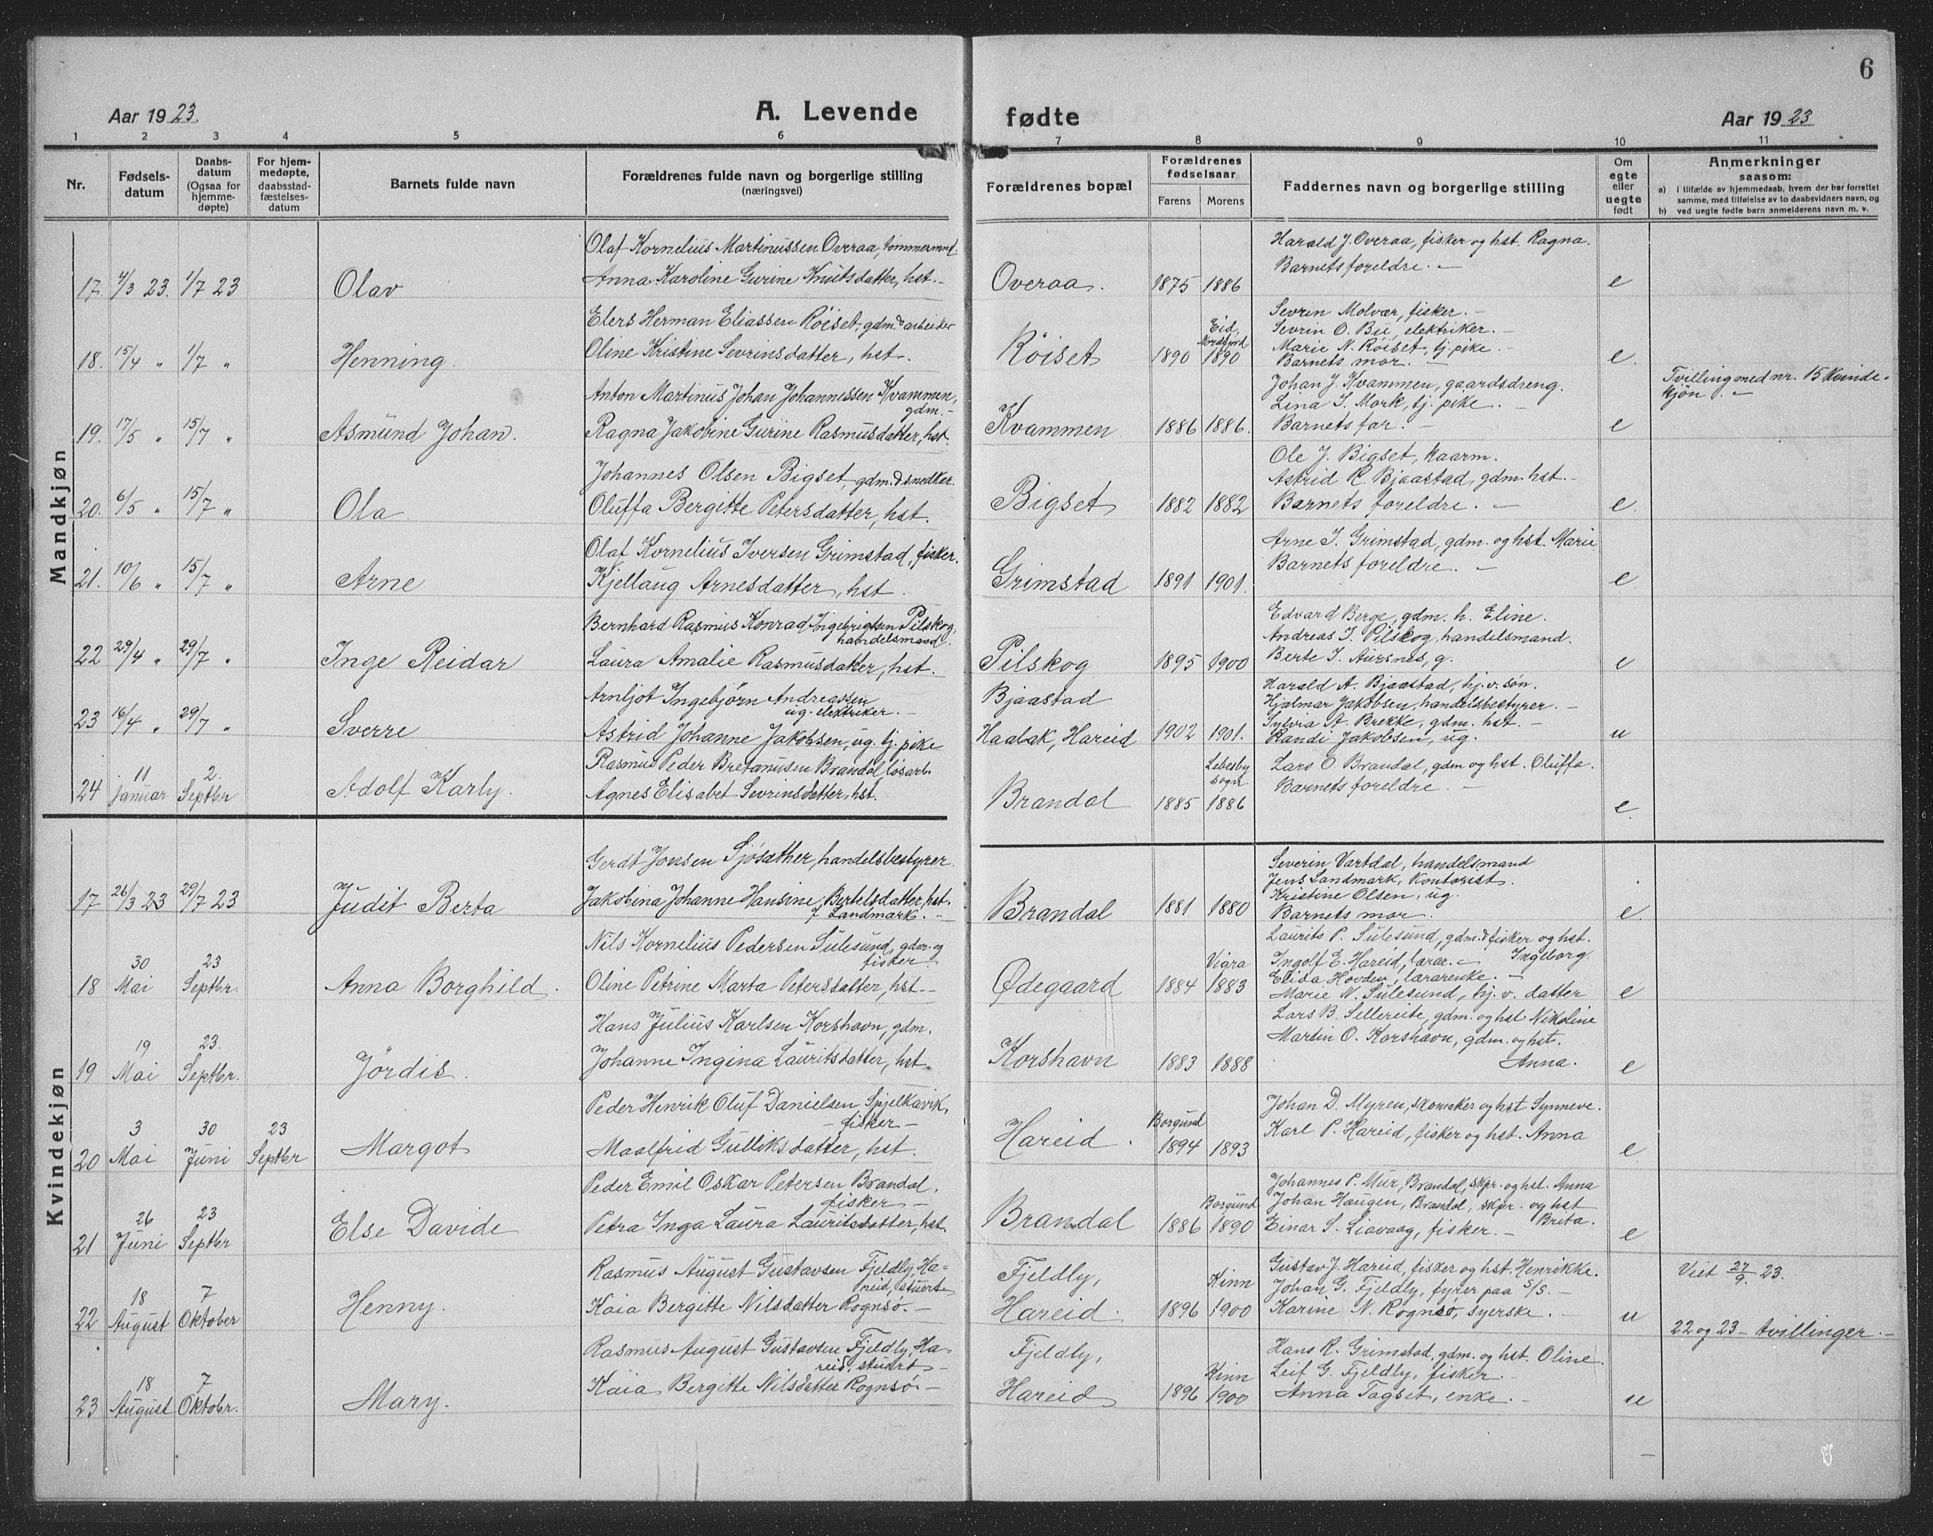 6
Aar 1923. A. Levende fødte Aar 1923
1 2 3 4 5 6 7 8 9 10 11
Nr. Fødsels-datum Daabs-datum (Ogsaa for hjemme-døpte) For hjem-medøpte, daabsstad-fæstelses-datum Barnets fulde navn Forældrenes fulde navn og borgerlige stilling (næringsvei) Forældrenes bopæl Forældrenes fødselsaar Farens Morens Faddernes navn og borgerlige stilling Om egte eller uegte født Anmerkninger saasom:
a) i tilfælde av hjemmedaab, hvem der har forrettet samme, med tilføielse av to daabsvidners navn, og
b) ved uegte fødte barn anmelderens navn m. v.
Mandkjøn
Olaf Kornelius Martinussen Overaa, tømmermd. Harald J. Overaa, fisker og hst. Ragna.
17. 4/3 23. 1/7 23 Olav Anna Karoline Gurine Knutsdatter, hst. Overaa. 1875 1886 Barnets foreldre. e
Elers Herman Eliassen Röiset, gdm. & arbeider Sevrin Molvær, fisker.
Eid, Nordfjord Sevrin O. Bu, elektriker.
18. 15/4 " 1/7 " Henning. Oline Kristine Sevrinsdatter, hst. Röiset 1890 1890 Marie N. Röiset, tj. pike. e.
Barnets mor.
Anton Martinus Johan Johannessen Kvammen, gdm. Johan J. Kvammen, gaardsdreng. Tvilling med nr. 15 kvinde-kjøn.
Lina I. Mork, tj. pike.
19. 17/5 " 15/7 " Asmund Johan. Ragna Jakobine Gurine Rasmusdatter, hst. Kvammen 1886 1886. Barnets far. e
Johannes Olsen Bigset, gdm. & snedker. Ole J. Bigset, kaarm.
Astrid R. Bjaastad, gdm. hst.
20. 6/5 " 15/7 " Ola Oluffa Bergitte Petersdatter, hst. Bigset 1882 1882 Barnets foreldre. e.
Olaf Kornelius Iversen Grimstad, fisker. Arne I. Grimstad, gdm. og hst. Marie
21. 10/6 " 15/7 " Arne Kjellaug Arnesdatter, hst. Grimstad 1891 1901. Barnets foreldre. e
Bernhard Rasmus Konrad Ingebrigtsen Pilskog, handelsmand. Edvard Berge, gdm. h. Eline.
Andreas I. Pilskog, handelsmand.
22 29/4 " 29/7 " Inge Reidar Laura Amalie Rasmusdatter, hst. Pilskog 1895 1900 Berte I. Aursnes, g. e
Arnljot Ingebjørn Andreassen ug. elektriker. Bjaastad Harald A. Bjaastad, hj. v. søn.
Hjalmar Jakobsen, handelsbestyrer.
23 16/4 " 29/7 " Sverre Astrid Johanne Jakobsen, ug. tj. pike Haabak, Hareid 1902 1901. Sylvia A. Brekke, gdm. hst. u
Randi Jakobsen, ug.
Rasmus Peder Bretanusen Brandal løsarb. Lebesby sogn Lars O Brandal, gdm og hst. Oluffa.
24 11 januar 2. Septbr Adolf Karly. Agnes Elisabet Sevrinsdatter, hst. Brandal 1885 1886 Barnets foreldre. e.
Kvindekjøn
Gerdt Jonsen Sjøsæther, handelsbestyrer. Severin Vartdal, handelsmand
Jens Landmark, kontorist.
17 26/3 23 29/7 23 Judit Berta Jakobina Johanne Hansine Bertelsdatter, hst. f. Landmark. Brandal 1881 1880 Kristine Olsen, ug. e.
Barnets mor.
Nils Kornelius Pedersen Sulesund, gdm. og fisker Laurits P. Sulesund, gdm. & fisker og hst. Ingeborg.
Vigra Ingolf E. Hareid, lærar.
18 30 Mai 23 Septbr. Anna Borghild. Oline Petrine Marta Petersdatter, hst. Ødegaard 1884 1883 Elida Hovden, lærarenke. e
Marie N. Sulesund, hj. v. datter
Hans Julius Karlsen Korshavn, gdm. Lars B. Sellereite, gdm. og hst Nikoline
19 19 Mai 23. Septbr. Jördis. Johanne Ingina Lauritsdatter, hst. Korshavn 1883 1888 Martin O. Korshavn, gdm. og hst. Anna. e
Peder Henrik Oluf Danielsen Spjelkavik, fisker Borgund Johan D. Myren, skomaker og hst Synneve.
20 3 Mai 30 Juni 23 Septbr Margot Maalfrid Gulliksdatter, hst. Hareid. 1894 1893 Karl P. Hareid, fisker og hst. Anna e.
Peder Emil Oskar Petersen Brandal, fisker Johannes P. Mur, Brandal, skpr. og hst. Anna
Borgund Johan Haugen, Brandal, skpr. og hst Brita.
21 26 Juni 23 Septbr Else Davide Petra Inga Laura Lauritsdatter, hst Brandal 1886 1890 Einar S. Liavaag, fisker. e
Rasmus August Gustavsen Fjeldly, Ha-reid, stuert Fjeldly, Gustav J. Hareid, fisker og hst. Henrikke. Viet 27/9. 23.
Kinn Johan G. Fjeldly, fyrer paa S/S.
22 18 August 7 Oktober Henny. Kaia Bergitte Nilsdatter Rognsø. Hareid. 1896 1900 Karine N. Rognsø, syerske. u 22 og 23 tvillinger.
Rasmus August Gustavsen Fjeldly, Ha-reid, stuert Fjeldly, Hans R. Grimstad, gdm. og hst. Oline.
Kinn Leif G. Fjeldly, fisker
23 18 August 7 Oktobr. Mary. Kaia Bergitte Nilsdatter Rognsø Hareid 1896 1900 Anna Tagset, enke. u